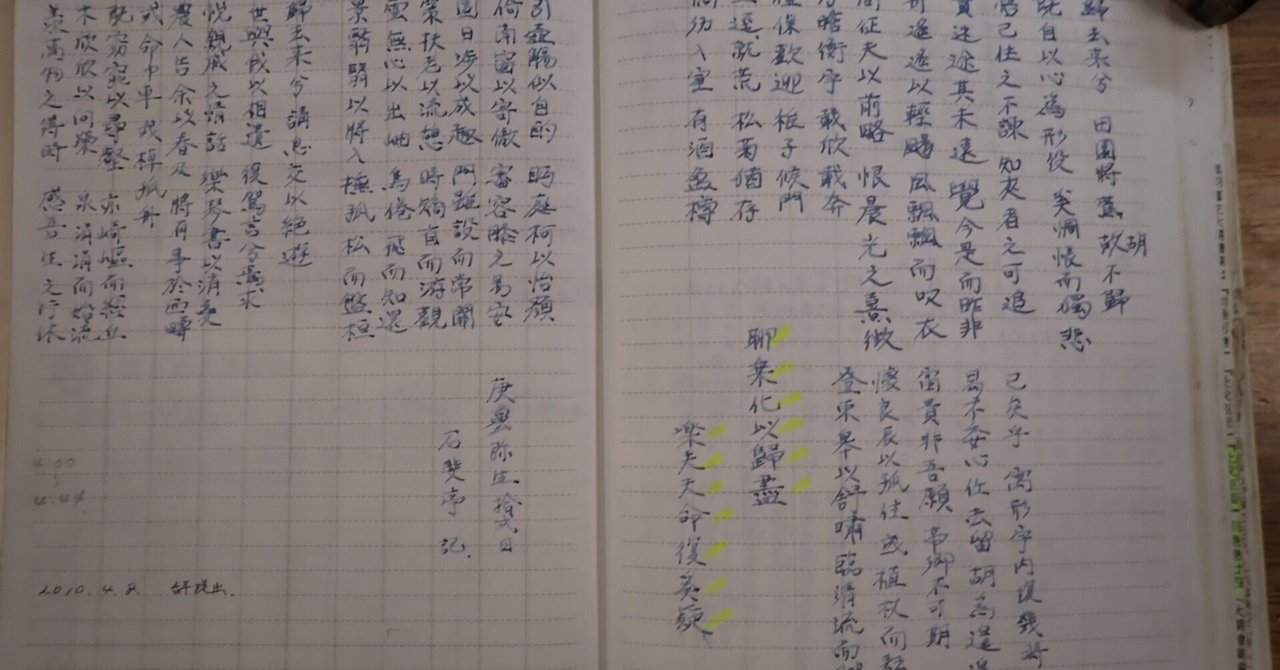 歸去来兮 田園将蕪 胡不歸
既自以心為形役 奚惆悵而獨悲
悟已往之不諫 知来者之可追
實迷途其未遠 覺今是而昨非
舟遙遙以輕颺 風飄飄而吹衣
問征夫以前路 恨晨光之熹微
乃瞻衡宇 載欣載奔
僮僕歓迎 稚子候門
三逕就荒 松菊猶存
携幼入室 有酒盈樽
已矣乎 寓形宇内復幾時
曷不委心任去留 胡為遑
富貴非吾願 帝郷不可期
懐良辰以孤往 或植杖而
登東皋以舒嘯 臨清流而
聊乗化以歸盡
楽夫天命復奚疑
引壺觴以自酌 眄庭柯以怡顔
倚南窗以寄傲 審容膝之易安
園日渉以成趣 門雖設而常關
策扶老以流憩 時矯首而游観
雲無心以出岫 鳥倦飛而知還
景翳翳以将入 撫孤松而盤桓
歸去来兮 請息交以絶遊
世與我以相遺 復駕言兮焉求
悦親戚之情話 楽琴書以消憂
農人告余以春及 将有事於西疇
或命巾車 或棹孤舟
既窈窕以尋壑 亦崎嶇而経丘
木欣欣以向榮 泉涓涓而始流
羨萬物之得時 感吾生之行休
庚寅弥生拾弐日
石斐亭 記.
4.00
4.44
2010.4.8.